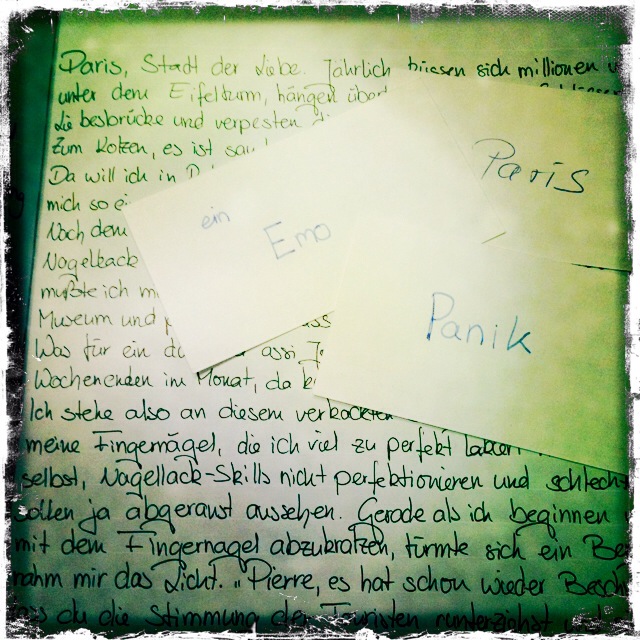 Paris, Stadt der Liebe. Jährlich küssen sich millionen
unter dem Eifelturm, hängen über
Liebesbrücke und verpesten
zum Kotzen, es ist
Da will ich in
mich so
Noch dem
Nagellack
mußte ich
Museum und
Was für ein assi
Wochenenden im Monat, da
Ich stehe also an diesem verkackten
meine Fingernägel, die ich viel zu perfekt
selbst, Nagellack-Skills nicht perfektionieren und schlecht
sollen ja abgerawt aussehen. Gerade als ich beginnen
mit dem Fingernagel abzukratzen, türmte sich ein
nahm mir das Licht. „Pierre, es hat schon wieder
dass du die Stimmung der Touristen runterziehst
Paris
ein
Emo
Panik